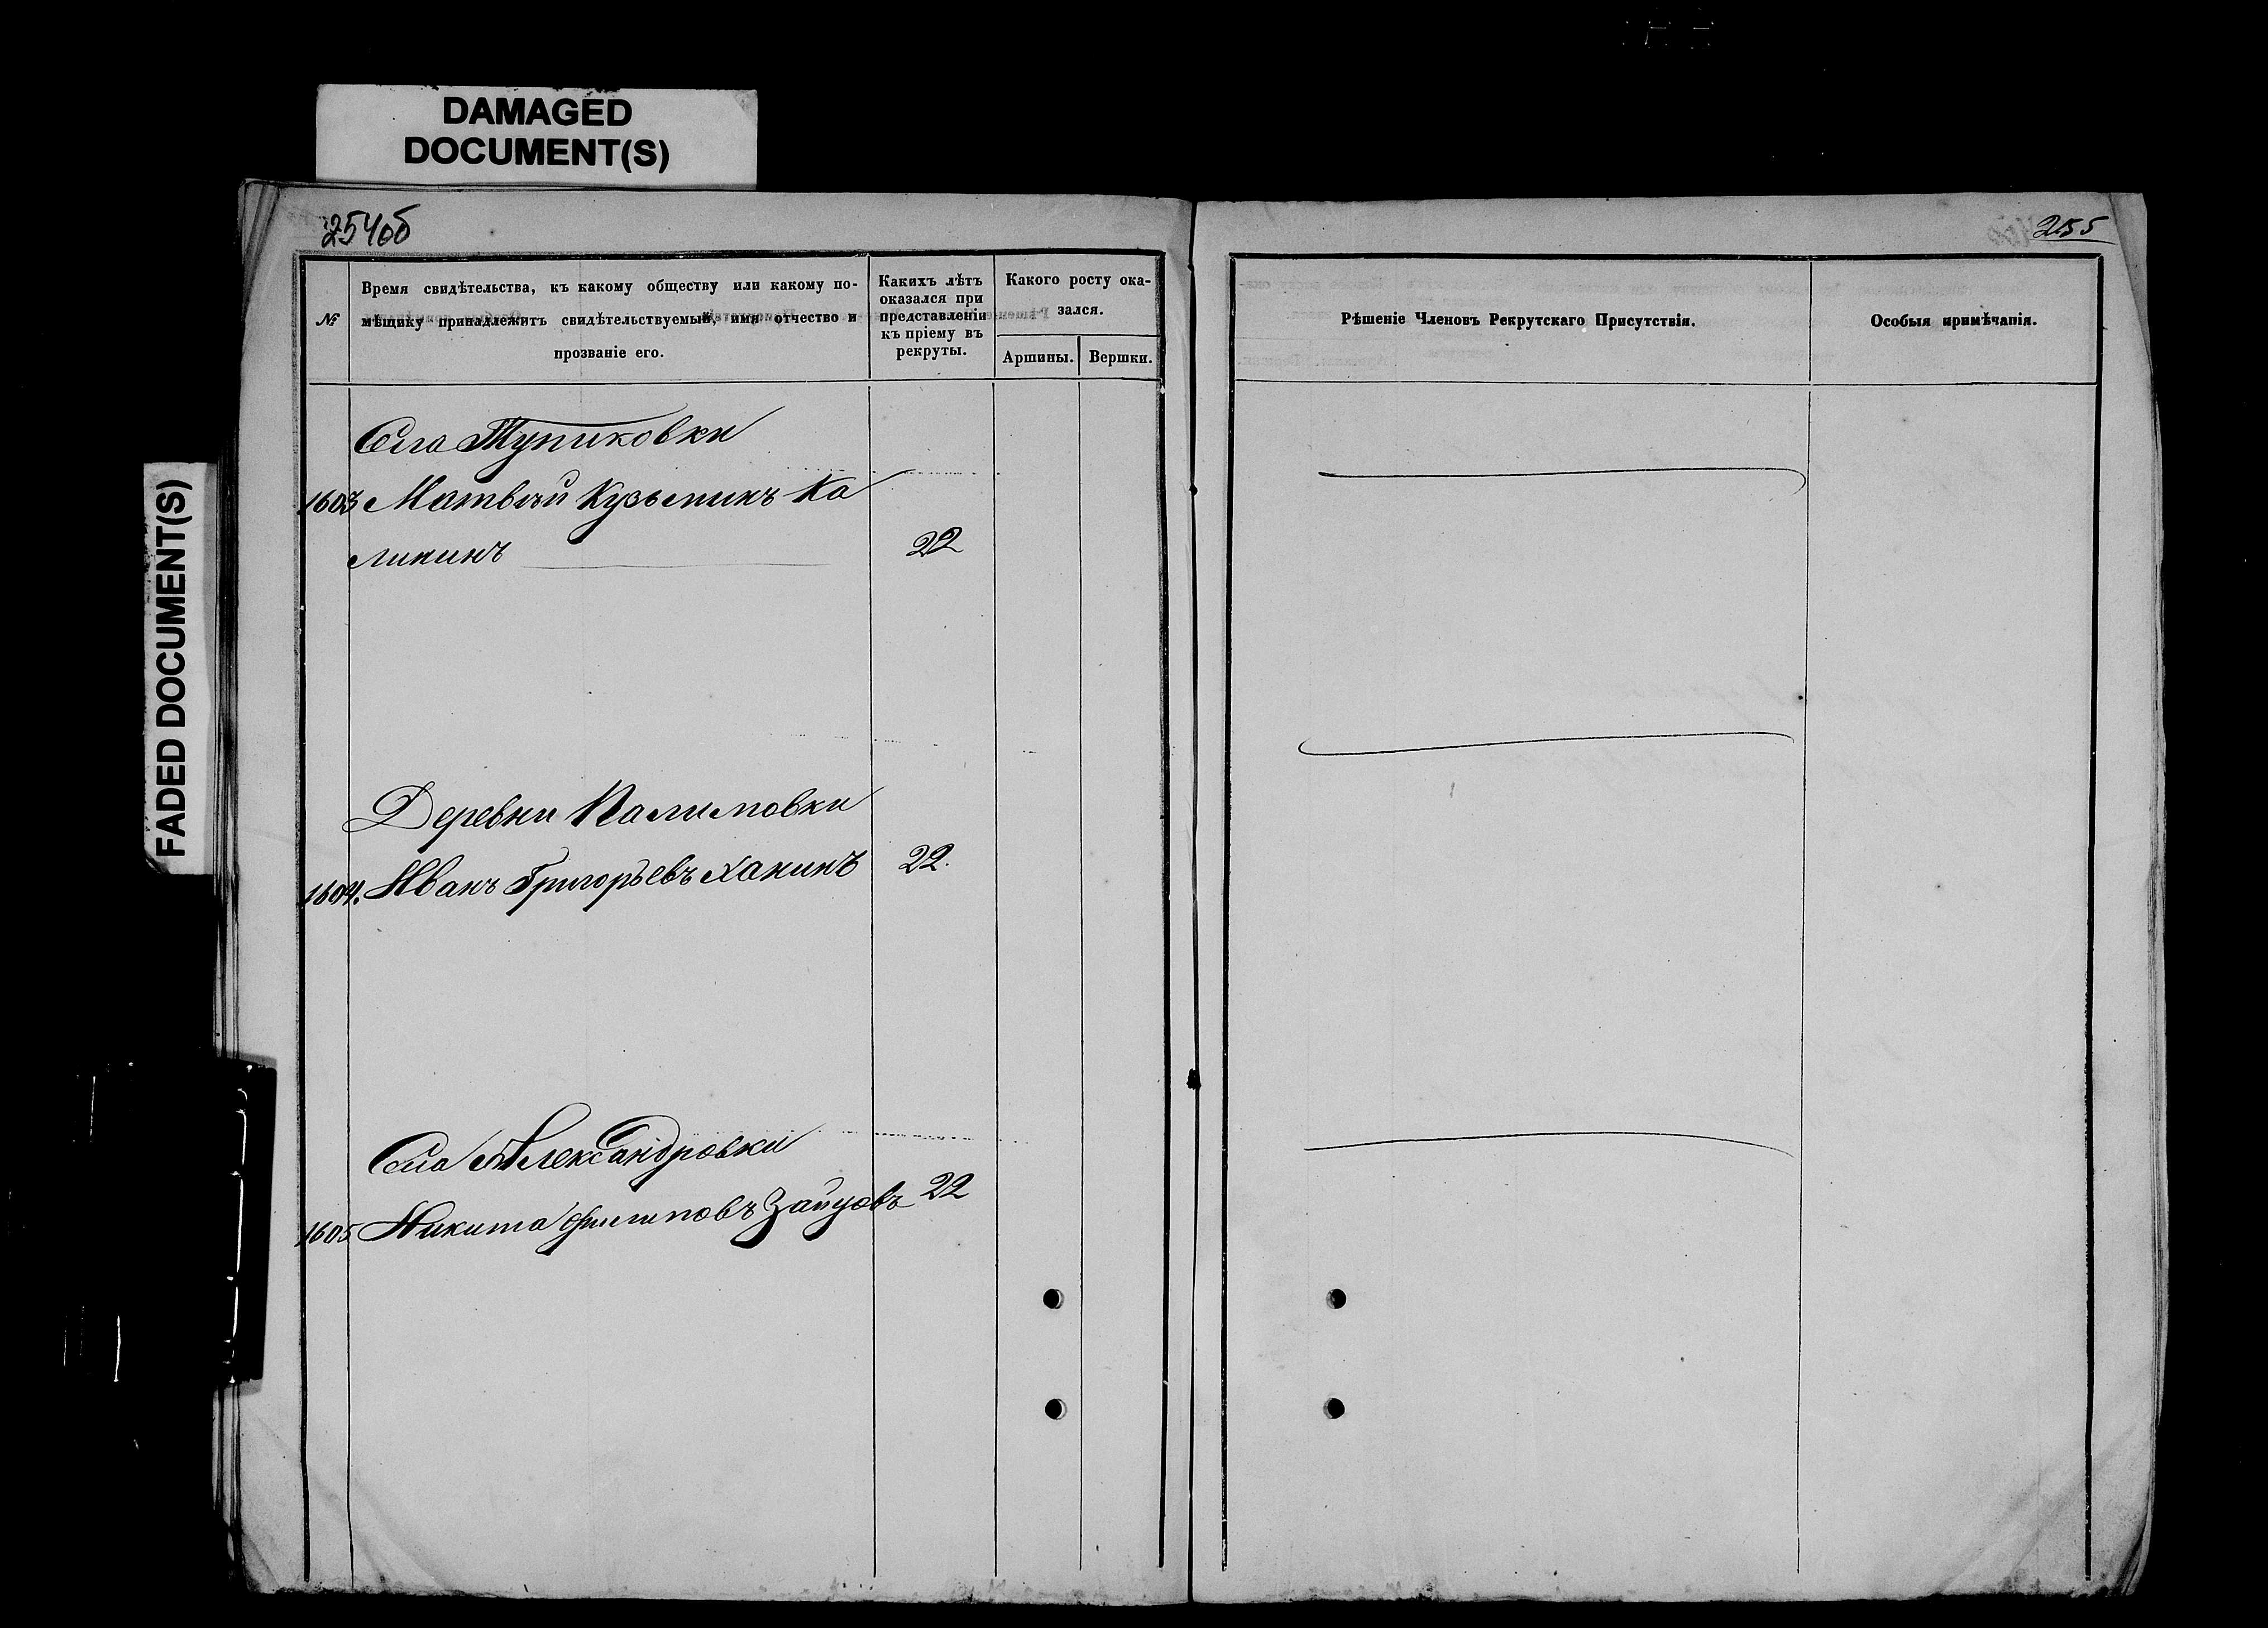 DAMAGED
DOCUMENT(S)
FADED DOCUMENT(S)
254об
255
№
Время свидѣтельства, къ какому обществу или какому по-
мѣщику принадлежитъ свидѣтельствуемый, имя отчество и
прозваніе его.
Какихъ лѣтъ
оказался при
представленіи
къ пріему въ
рекруты.
Какого росту ока-
зался.
Аршины.
Вершки.
Рѣшеніе Членовъ Рекрутскаго Присутствія.
Особыя примѣчанія.
Села Тупиковки
1603 Матвѣй Кузьминъ Ка
лининъ 22
Деревни Калимовки
1604. Иванъ Григорьевъ Ханинъ 22.
Села Александровки
1605 Никита Филиповъ Зайцовъ 22